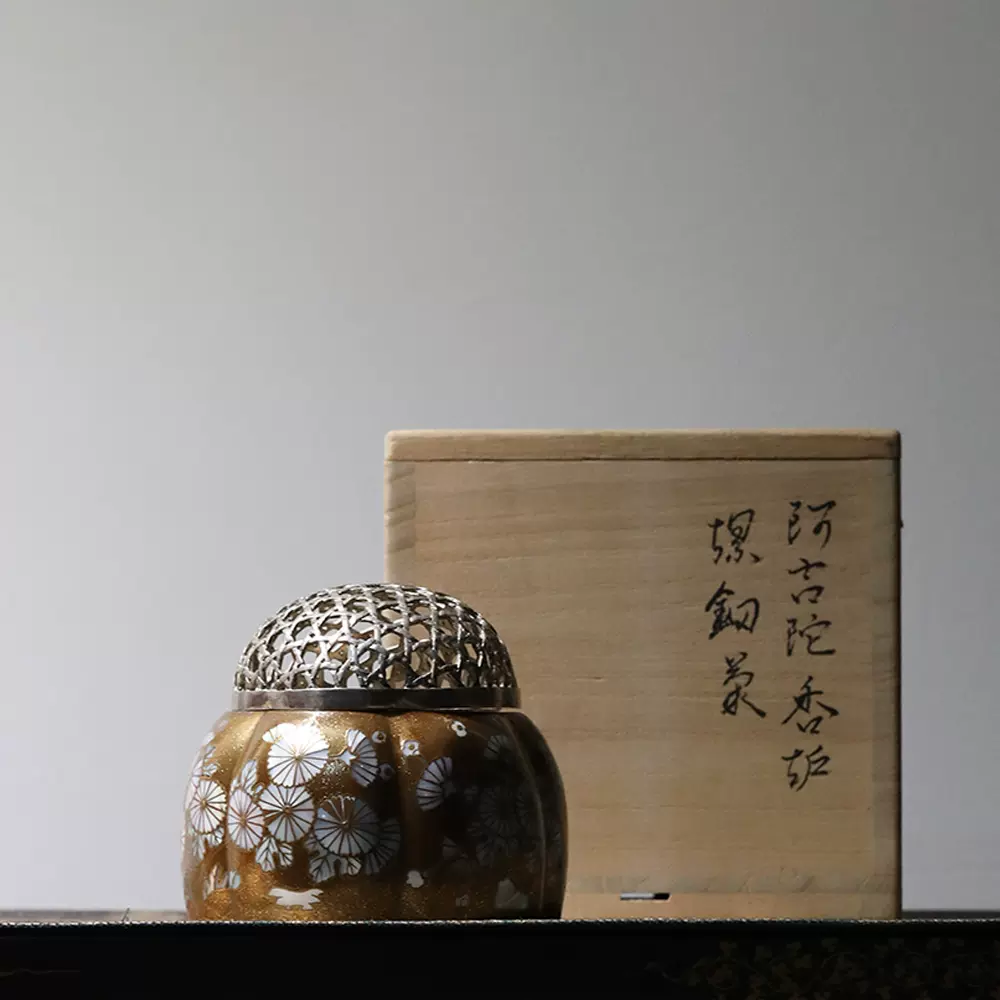 阿古陀香炉
螺鈿菊